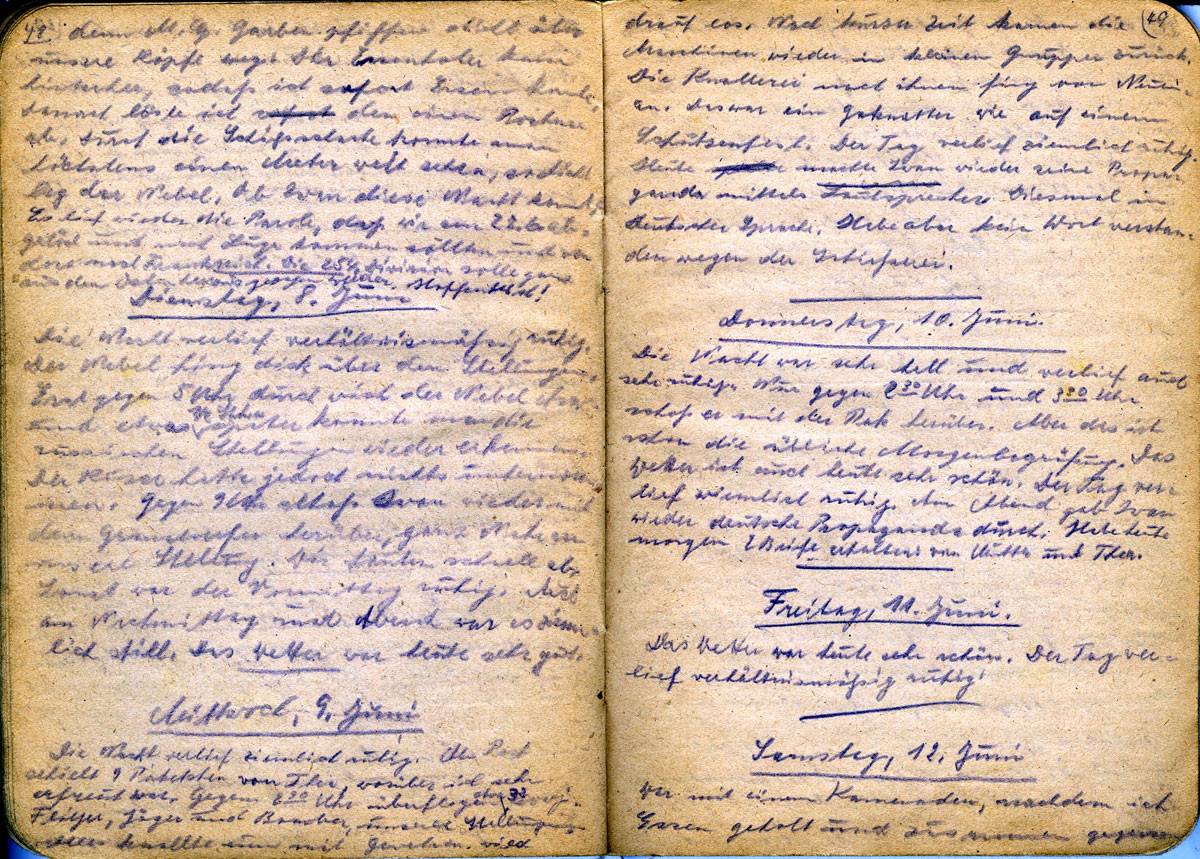 48) denn M. G. Garben pfiffen dicht über
unsere Köpfe weg. Der Essenholer kam
hinterher, sodass ich sofort Essen konnte.
danach löste ich den einen Posten
ab. Durch die Schiessscharte konnte man
höchstens einen Meter weit sehen, so dicht
lag der Nebel. Ob Iwan diese Nacht kommt
Es lief wieder die Parole, dass wir am 22. ab-
gelöst und nach kommen sollten und von
dort nach Frankreich. Die 254. Division solle ganz
aus dem Osten herausgezogen werden. Hoffentlich!
Dienstag, 8. Juni
Die Nacht verlief verhältnismäßig ruhig.
Der Nebel hing dick über den Stellungen.
Erst gegen 5 Uhr durch wird der Nebel
und etwas später konnte man die
russischen Stellungen wieder erkennen.
Der Russe hatte jedoch nichts unternom-
men. Gegen 9 Uhr schoss Iwan wieder mit
dem Granatwerfer herüber, ganz Nahe an
unsere Stellung. Wir hauten schnell ab.
Sonst war der Vormittag ruhig. Auch
am Nachmittag und Abend war es ziem-
lich still. Das Wetter war heute sehr gut.
Mittwoch, 9. Juni
Die Nacht verlief ziemlich ruhig. An Post
erhielt 9 Päckchen von Thea, worüber ich sehr
erfreut war. Gegen Uhr überflogen
Flieger, Jäger und Bomber, unsere Stellungen
alles knallte nun mit Gewehren wild
49
drauf los. Nach kurzer Zeit kamen die
Maschinen wieder in kleinen Gruppen zurück.
Die Knallerei nach ihnen fing von Neuen
an. Das war ein Geknatter wie auf einem
Schützenfest. Der Tag verlief ziemlich ruhig.
Heute machte Iwan wieder seine Propa-
ganda mittels Lautsprecher. Diesmal in
deutscher Sprache. Habe aber kein Wort verstan-
den wegen der Schiesserei.
Donnerstag, 10. Juni.
Die Nacht war sehr hell und verlief auch
sehr ruhig. Nur gegen 2 30 Uhr und 3 30 Uhr
schoss er mit der Pak herüber. Aber das ist
schon die übliche Morgenbegrüßung. Das
Wetter ist auch heute sehr schön. Der Tag ver-
lief ziemlich ruhig. Am Abend gab Iwan
wieder deutsche Propaganda durch. Habe heute
morgen 2 Briefe erhalten von Mutter und Thea.
Freitag, 11. Juni.
Das Wetter war heute sehr schön. Der Tag ver-
lief verhältnismäßig ruhig.
Samstag, 12. Juni
War mit einem Kameraden, nachdem ich
Essen geholt und zusammen gegessen